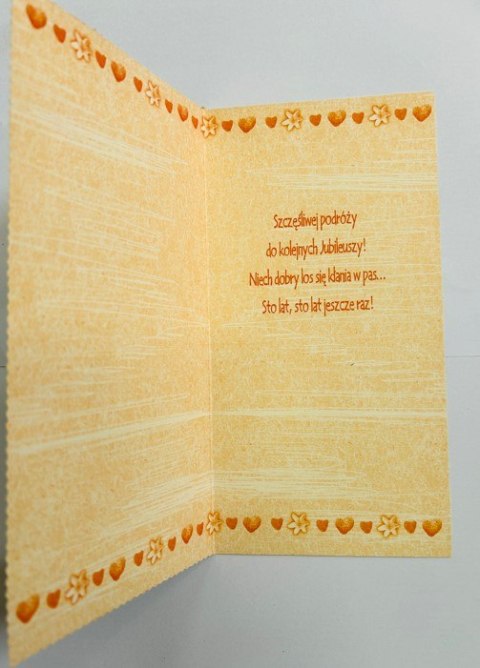 Szczęśliwej podróży
do kolejnych Jubileuszy!
Niech dobry los się kłania w pas...
Sto lat, sto lat jeszcze raz!